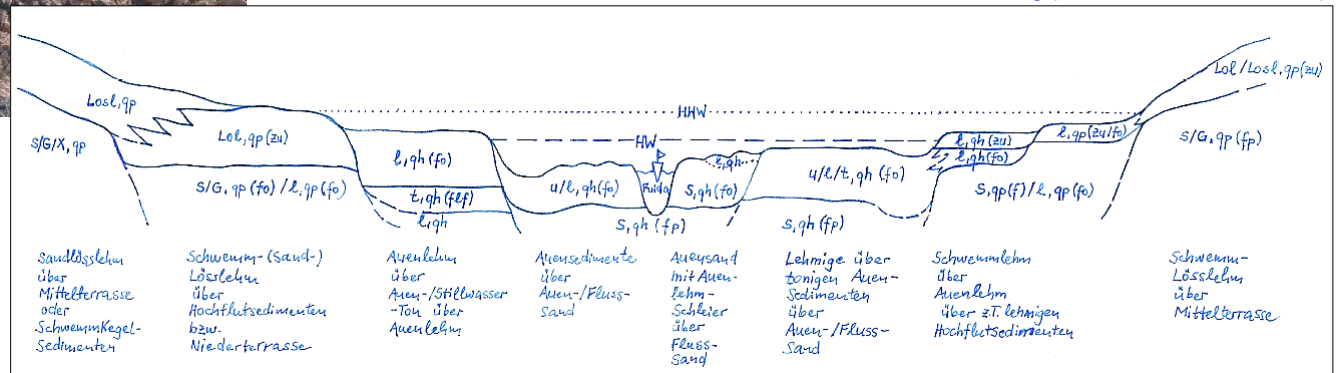 HHW
HW
Losl,qp
Lol/Losl,qp(zu)
s/G/X,qp
Lol,qp(zu)
l,qh(fo)
l,qh
l,qh(zu)
l,qp(zu/fo)
s/G,qp(fp)
t,qh(flf)
u/l,qh(fo)
Fulda
s,qh(fo)
u/l/t,qh(fo)
l,qh(fo)
s/G,qp(fo)/l,qp(fo)
l,qh
s,qh(fp)
s,qh(fp)
s,qp(f)/l,qp(fo)
Sandlösslehm
über
Mittelterrasse
oder
Schwemmkegel-
Sedimenten
Schwemm-(Sand-)
Lösslehm
über
Hochflutsedimenten
bzw.
Niederterrasse
Auenlehm
über
Auen-/Stillwasser
-Ton über
Auenlehm
Auensedimente
über
Auen-/Fluss-
sand
Auensand
mit Auen-
lehm-
Schleier
über
Fluss-
Sand
Lehmige über
tonigen Auen-
Sedimenten
über
Auen-/Fluss-
Sand
Schwemmlehm
über
Auenlehm
über z.T. lehmigen
Hochflutsedimenten
Schwemm-
Lösslehm
über
Mittelterrasse